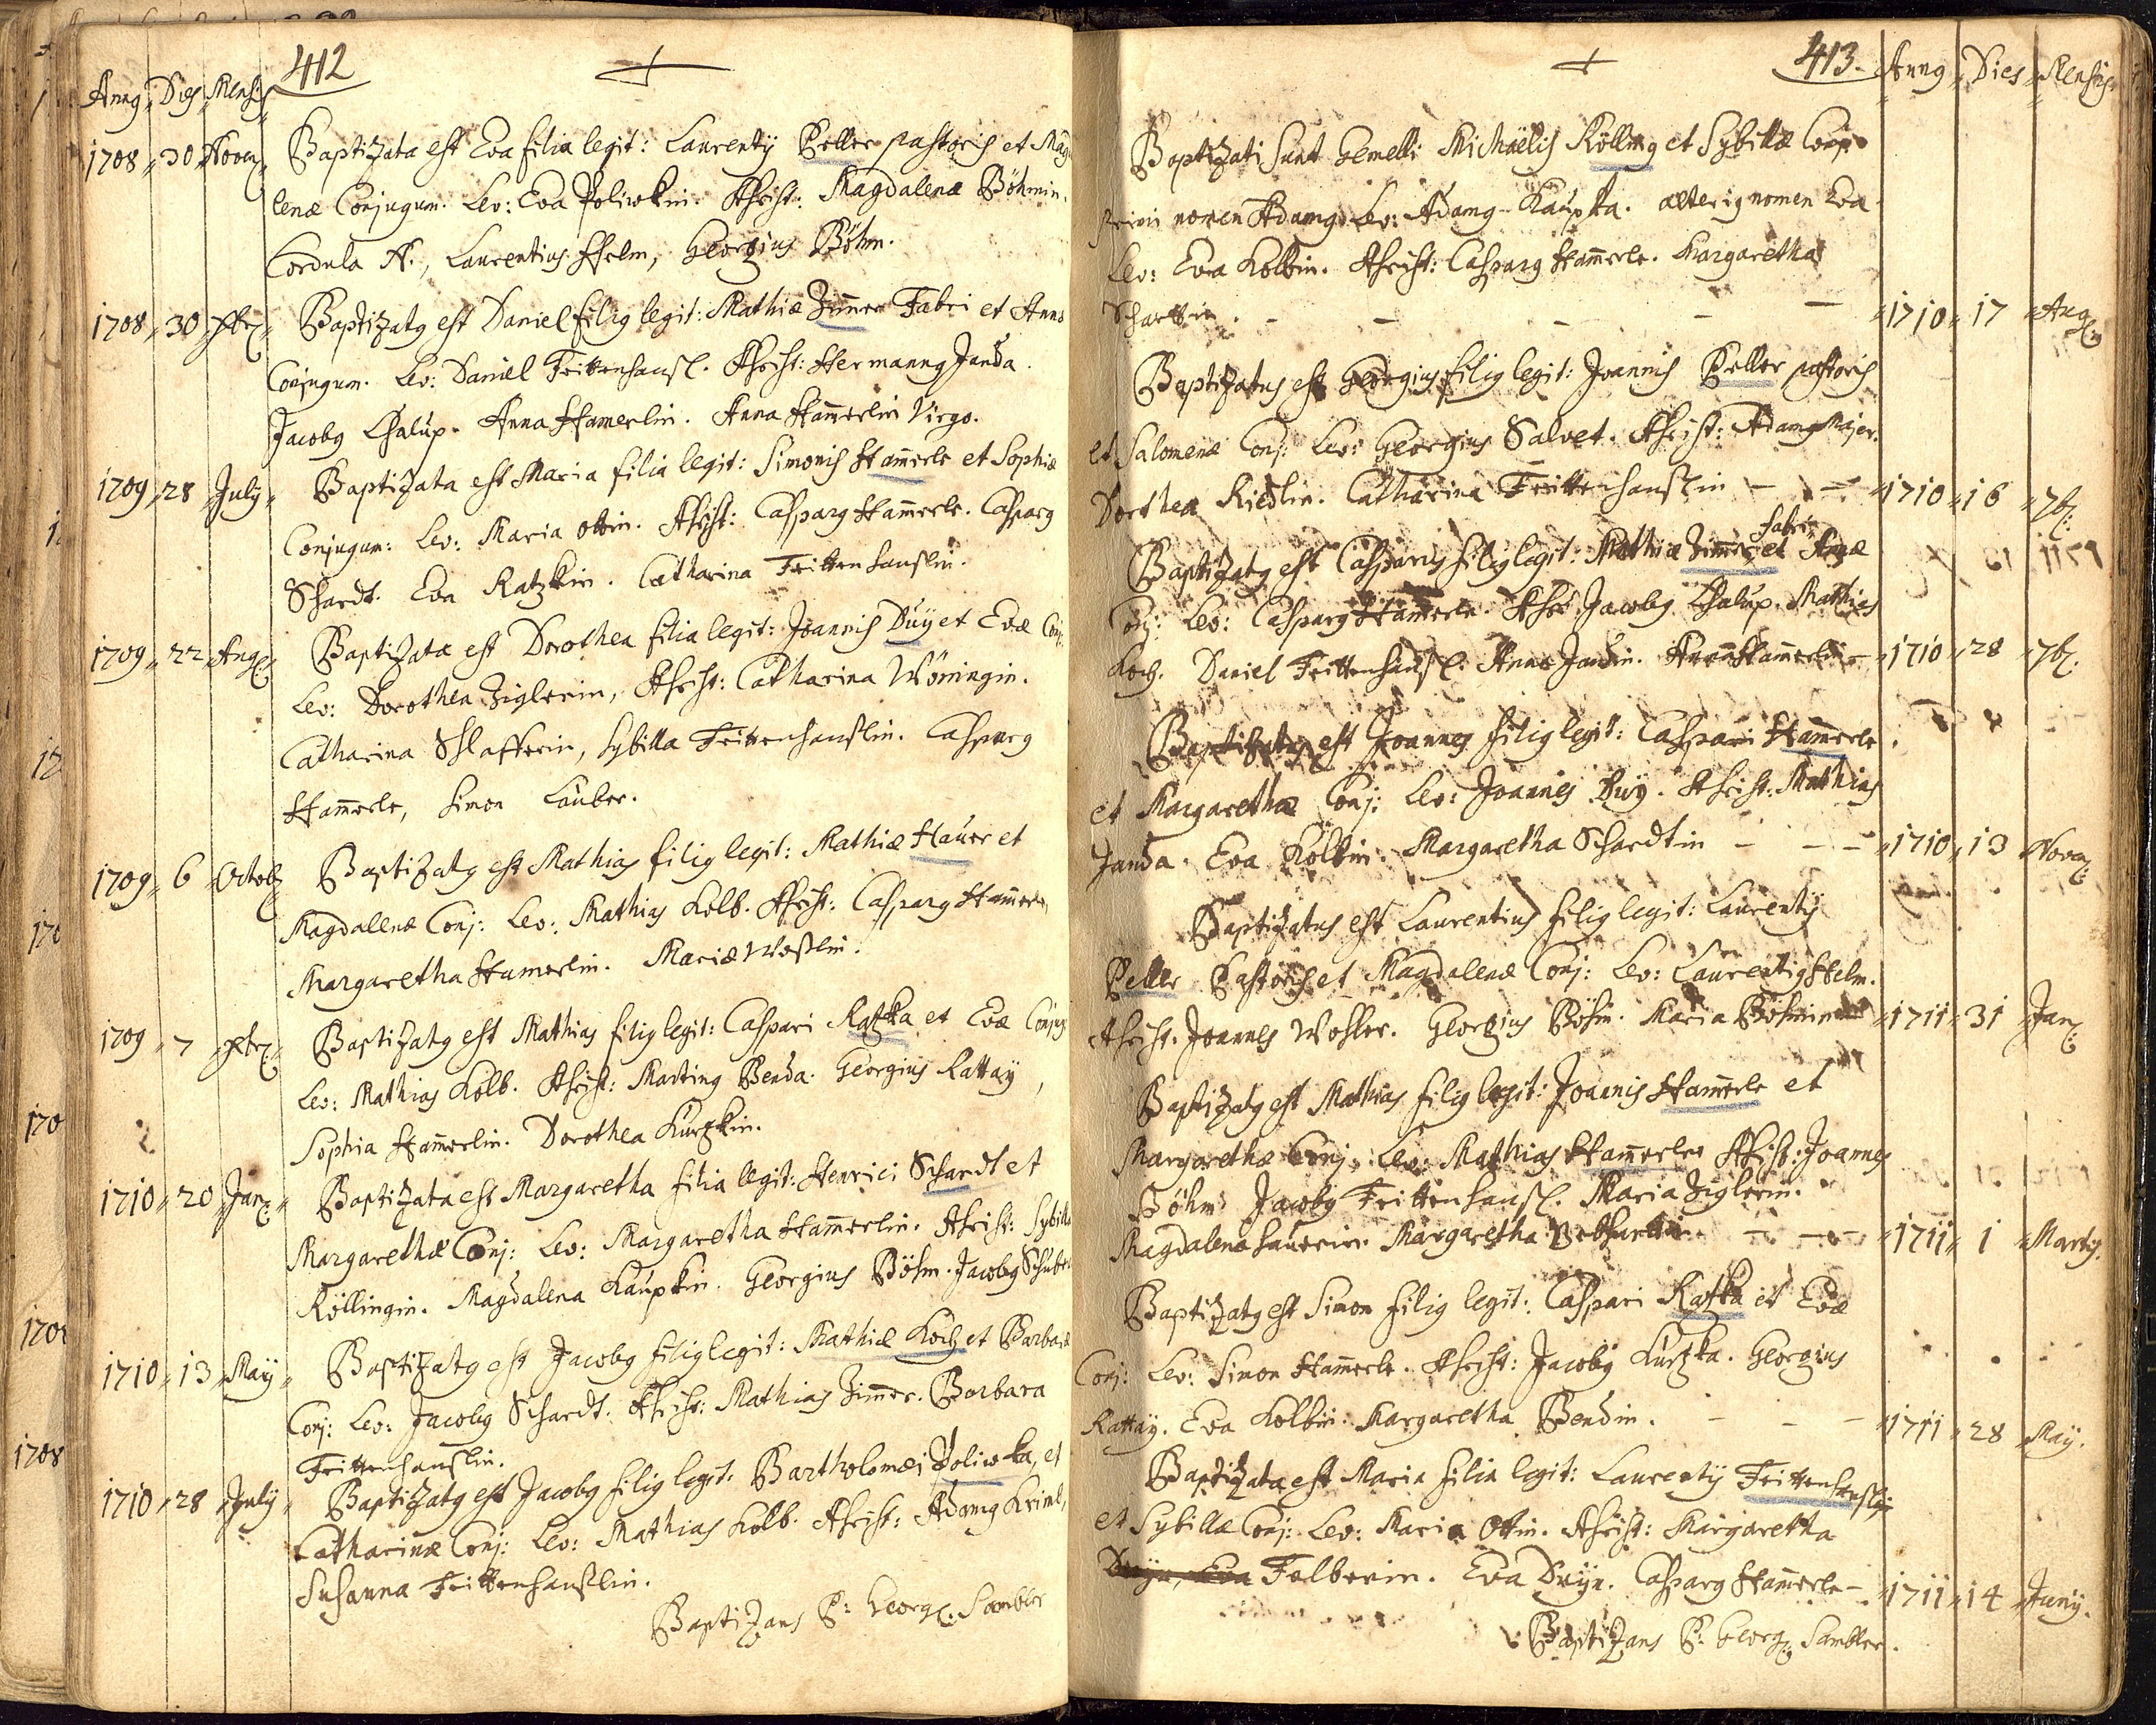 412
Annus Dies Mensis
1708 30 Novem Baptizata est Eva filia legit: Laurentÿ Peller pastoris et Mag
lenæ Conjugum. Lev: Eva Poliwkin. Assist: Magdalena Böhmin.
Cordula N., Laurentius Helm, Georgius Böhm.
1708 30 Xbr Baptizatus est Daniel filius legit: Mathiæ Zimmer Fabri et Annæ
Conjugum. Lev: Daniel Frittenhansl. Assist: Hermannus Janda.
Jacobus Chalup. Anna Hamerlin. Anna Ham̄erlin Virgo.
1709 28 July Baptizata est Maria filia legit: Simonis Ham̄erle et Sophiæ
Conjugum: Lev: Maria Ottin. Assist: Casparus Ham̄erle. Casparus
Schardt. Eva Ratzkin. Catharina Frittenhanslin.
1709 22 Aug Baptizata est Dorothea filia legit: Joannis Duÿ et Evæ Conj:
Lev: Dorothea Ziglerin, Assist: Catharina Wöningin.
Catharina Schlafferin, Sybilla Frittenhanslin. Casparus
Ham̄erle, Simon Lauber.
1709 6 Octob Baptizatus est Mathias filius legit: Mathiæ Hauer et
Magdalenæ Conj: Lev: Mathias Kolb. Assist: Casparus Ham̄erle,
Margaretha Hamerlin. Maria Woslin.
1709 7 Xbr Baptizatus est Mathias filius legit: Caspari Ratzka et Evæ Conjug
Lev: Mathias Kolb. Assist: Martinus Benda. Georgius Rattaÿ,
Sophia Ham̄erlin. Dorothea Kurzkin.
1710 20 Jan Baptizata est Margaretha filia legit: Henrici Schardt et
Margarethæ Conj: Lev: Margaretha Ham̄erlin. Assist: Sybilla
Röllingin. Magdalena Kaupkin. Georgius Böhm. Jacobus Schube
1710 13 Maÿ Baptizatus est Jacobus filius legit: Mathiæ Koch et Barbaræ
Conj: Lev: Jacobus Schardt. Assist: Mathias Zimmer. Barbara
Frittenhanslin.
1710 28 July Baptizatus est Jacobus filius legit: Bartholomæi Poliwka, et
Catharinæ Conj: Lev: Mathias Kolb. Assist: Adamus Kriml,
Susanna Frittenhanslin.
Baptizans P: Georg: Sambler
413
Annus Dies Mensis
Baptizati sunt Gemelli Michaëlis Rölling et Sybillæ Conj:
primi nomen Adamus Lev: Adamus Kaupka. alterius nomen Eva
Lev: Eva Kolbin. Assist: Casparus Ham̄erle. Margaretha
Schartin. 1710 17 Aug
Baptizatus est Georgius filius legit: Joannis Peller pastoris
et Salomenæ Conj: Lev: Georgius Salvet. Assist: Adamus Majer.
Dorothea Riedlin. Catharina Frittenhanslin 1710 16 7b:
Baptizatus est Casparus filius legit: Mathiæ Zimmer Fabri et Annæ
Conj: Lev: Casparus Ham̄erle. Assis: Jacobus Chalup. Mathias
Koch. Daniel Frittenhansl. Anna Jandin. Anna Ham̄erlin 1710 28 7b:
Baptizatus est Joannes filius legit: Caspari Ham̄erle
et Margarethæ Conj: Lev: Joannes Duÿ. Assist: Mathias
Janda. Eva Kolbin. Margaretha Schardtin 1710 13 Novem
Baptizatus est Laurentius filius legit: Laurentÿ
Peller Pastoris et Magdalenæ Conj: Lev: Laurentius Helm.
Assist: Joannes Wohler. Georgius Böhm. Maria Böhmin 1711 31 Jan
Baptizatus est Mathias filius legit: Joannis Ham̄erle et
Margarethæ Conj: Lev: Mathias Ham̄erle Assist: Joannes
Böhm. Jacobus Frittenhansl. Maria Ziglerin.
Magdalena Hauerin. Margaretha 1711 1 Martÿ.
Baptizatus est Simon filius legit: Caspari Ratzka et Evæ
Conj: Lev: Simon Ham̄erle. Assist: Jacobus Kurzka. Georgius
Rattaÿ. Eva Kolbin. Margaretha Bendin. 1711 28 Maÿ.
Baptizata est Maria filia legit: Laurentÿ Frittenhansl
et Sybillæ Conj: Lev: Maria Ottin. Assist: Margaretha
Felberin. Eva Duÿn. Casparus Ham̄erle 1711 14 Junÿ.
Baptizans P: Georg: Sambler.